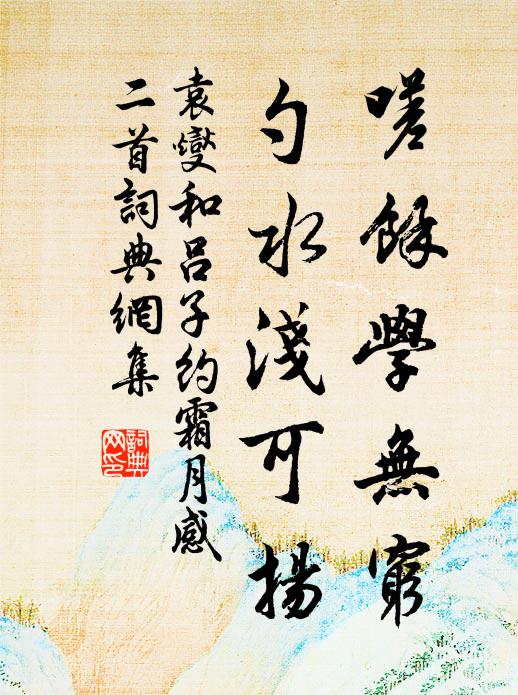 嗟餘學無窮
勺水淺可揚
袁燮和呂子約霜月感
二首詞典網集
詞典
网印